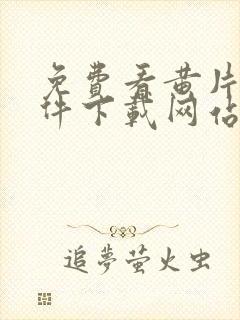 免費看黄片
件下載网站
追夢萤火虫